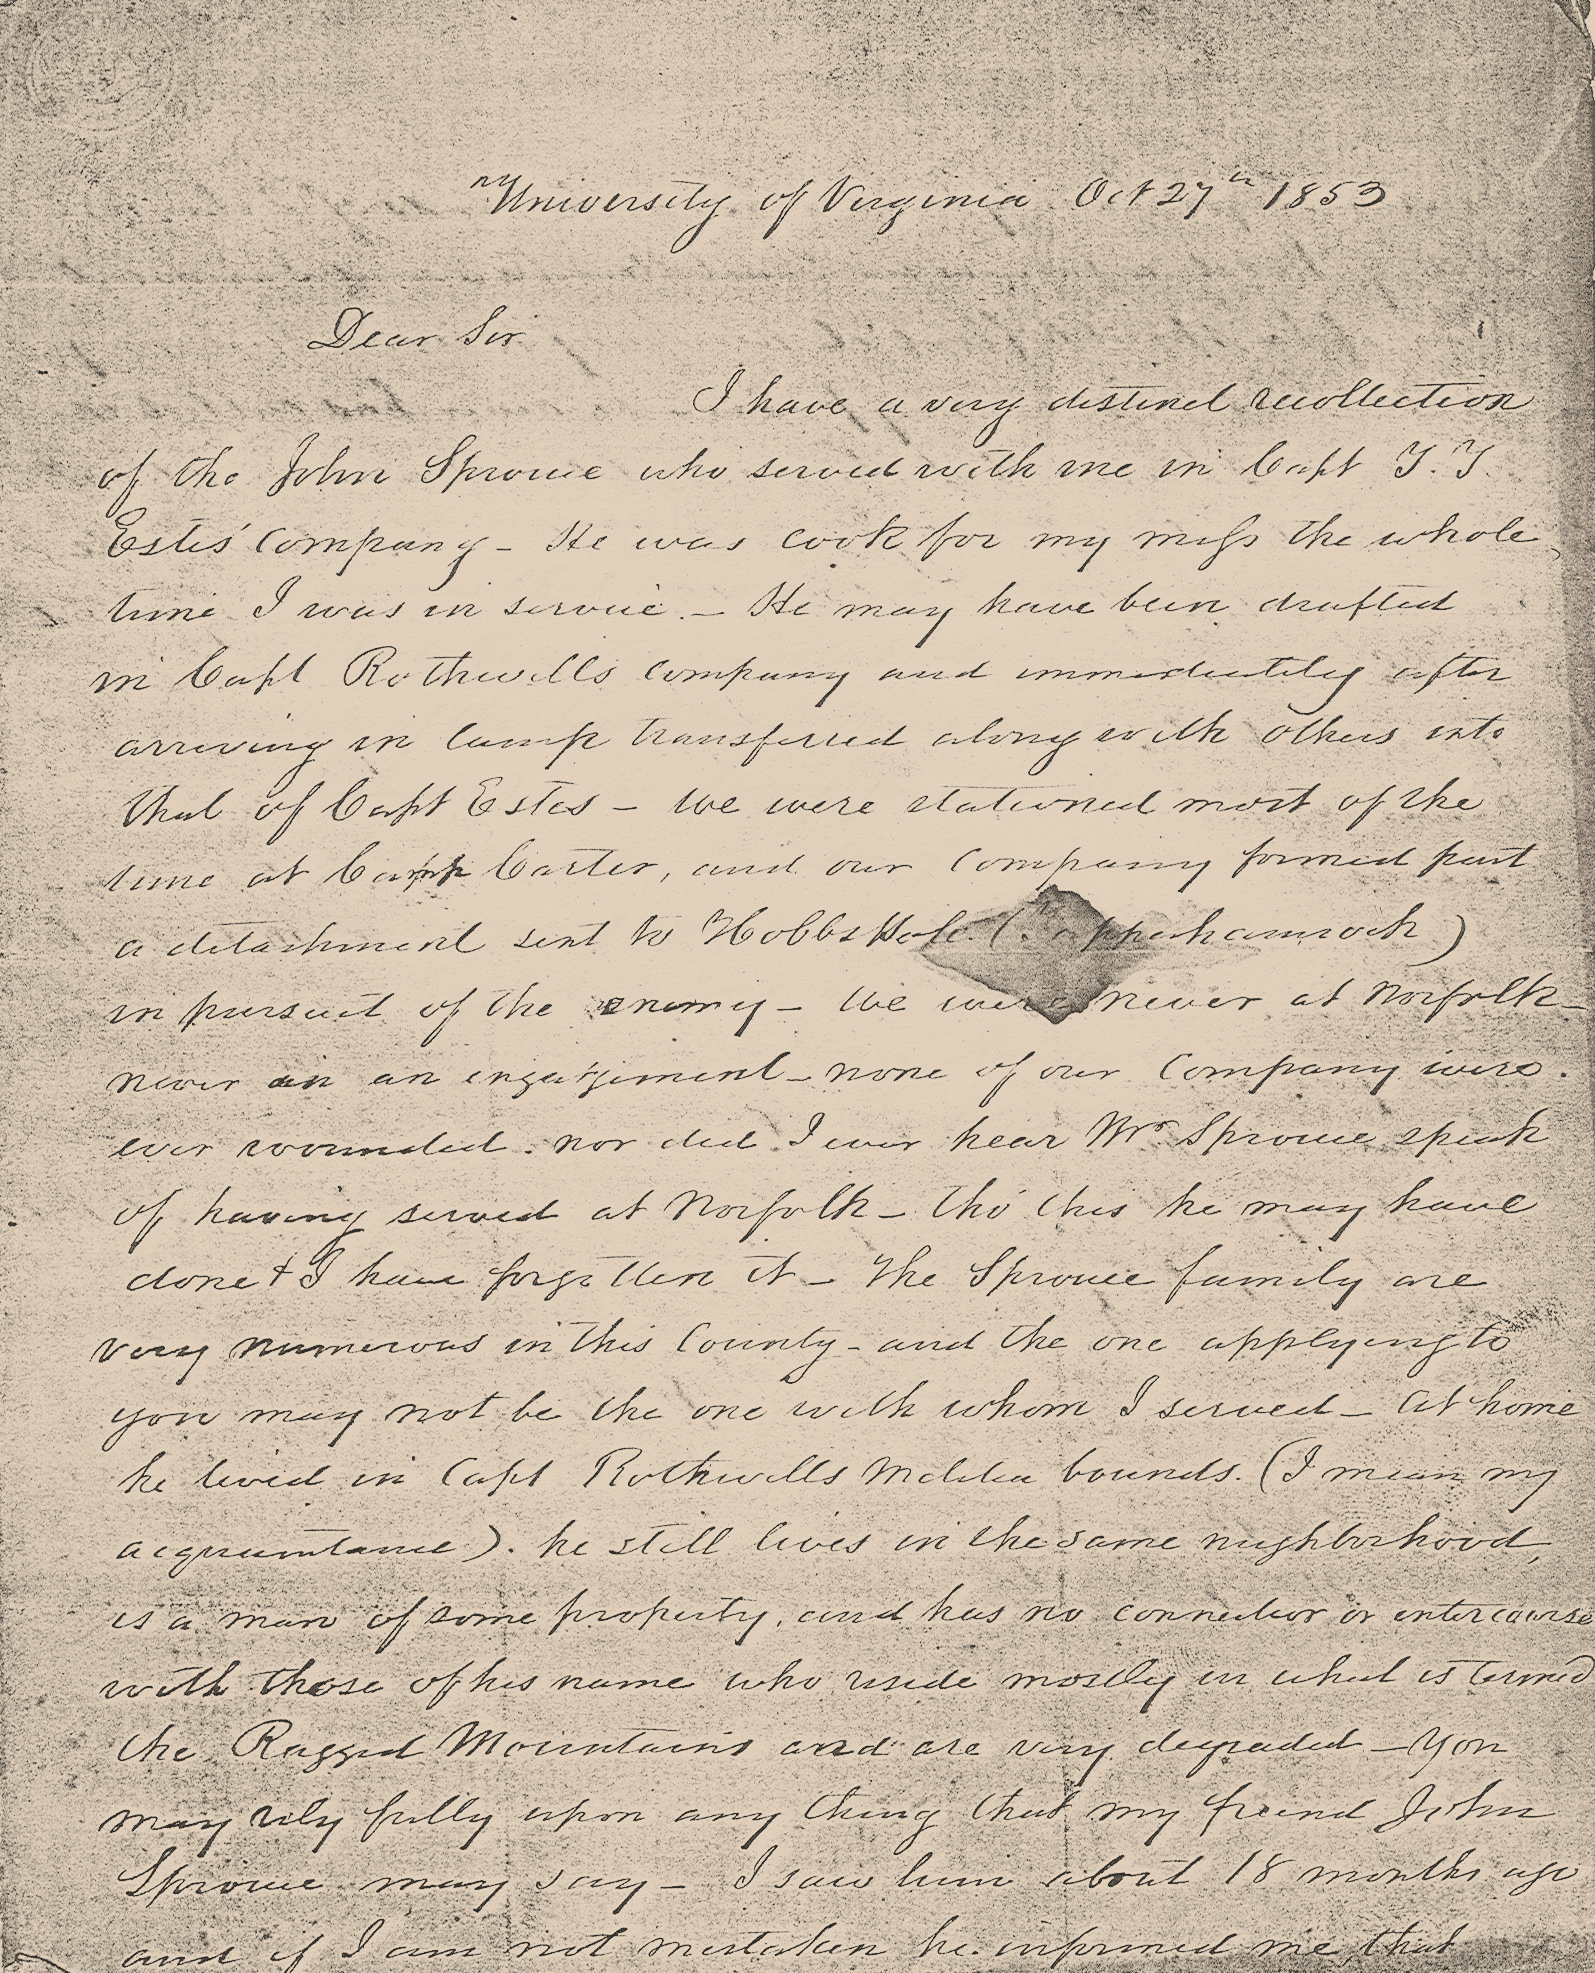 University of Virginia Oct 27th 1853
Dear Sir
I have a very distinct recollection
of the John Sprouce who served with me in Capt T. T.
Estes' company - He was cook for my mess the whole
time I was in service. - He may have been drafted
in Capt Rothwells company and immediately after
arriving in camp transferred along with others into
that of Capt Estes - We were stationed most of the
time at Camp Carter, and our company formed part
a detachment sent to Hobbs Hole (
in pursuit of the enemy - We were never at Norfolk -
never in an engagement - none of our Company were
ever wounded. nor did I ever hear Mr Sprouce speak
of having served at Norfolk - tho' this he may have
done & I have forgotten it - The Sprouce family are
very numerous in this County - and the one applying to
you may not be the one with whom I served - At home
he lived in Capt Rothwells Militia bounds. (I mean my
acquaintance). he still lives in the same neighborhood,
is a man of some property, and has no connection or intercourse
with those of his name who reside mostly in what is termed
the Ragged Mountains and are very degraded - You
may rely fully upon any thing that my friend John
Sprouce may say - I saw him about 18 months ago
and if I am not mistaken he informed me that